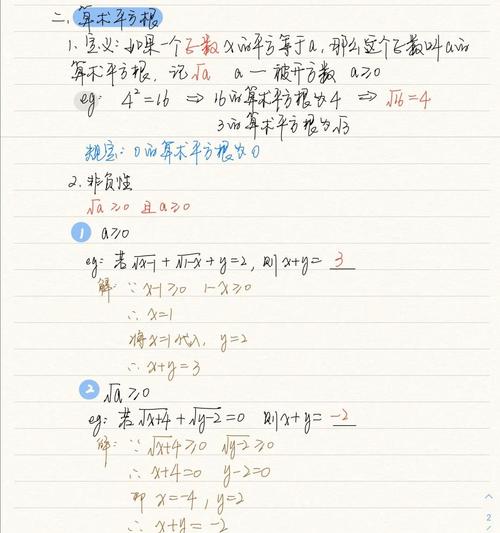 二、算术平方根
1. 定义：如果一个正数x的平方等于a，那么这个正数叫a的
算术平方根，记√a a — 被开方数 a≥0
eg: 4²=16 ⇒ 16的算术平方根为4 ⇒ √16=4
3的算术平方根为√3
规定：0的算术平方根为0
2. 非负性
√a≥0 且 a≥0
① a≥0
eg: 若√x-1 + √1-x + y=2, 则x+y= 3
解：∵ x-1≥0 1-x≥0
∴ x=1
将x=1代入, y=2
∴ x+y=3
② √a≥0
eg: 若√x+4 + √y-2=0 则x+y= -2
解：∵ √x+4≥0 √y-2≥0
∴ x+4=0 y-2=0
即 x=-4, y=2
∴ x+y=-2
2